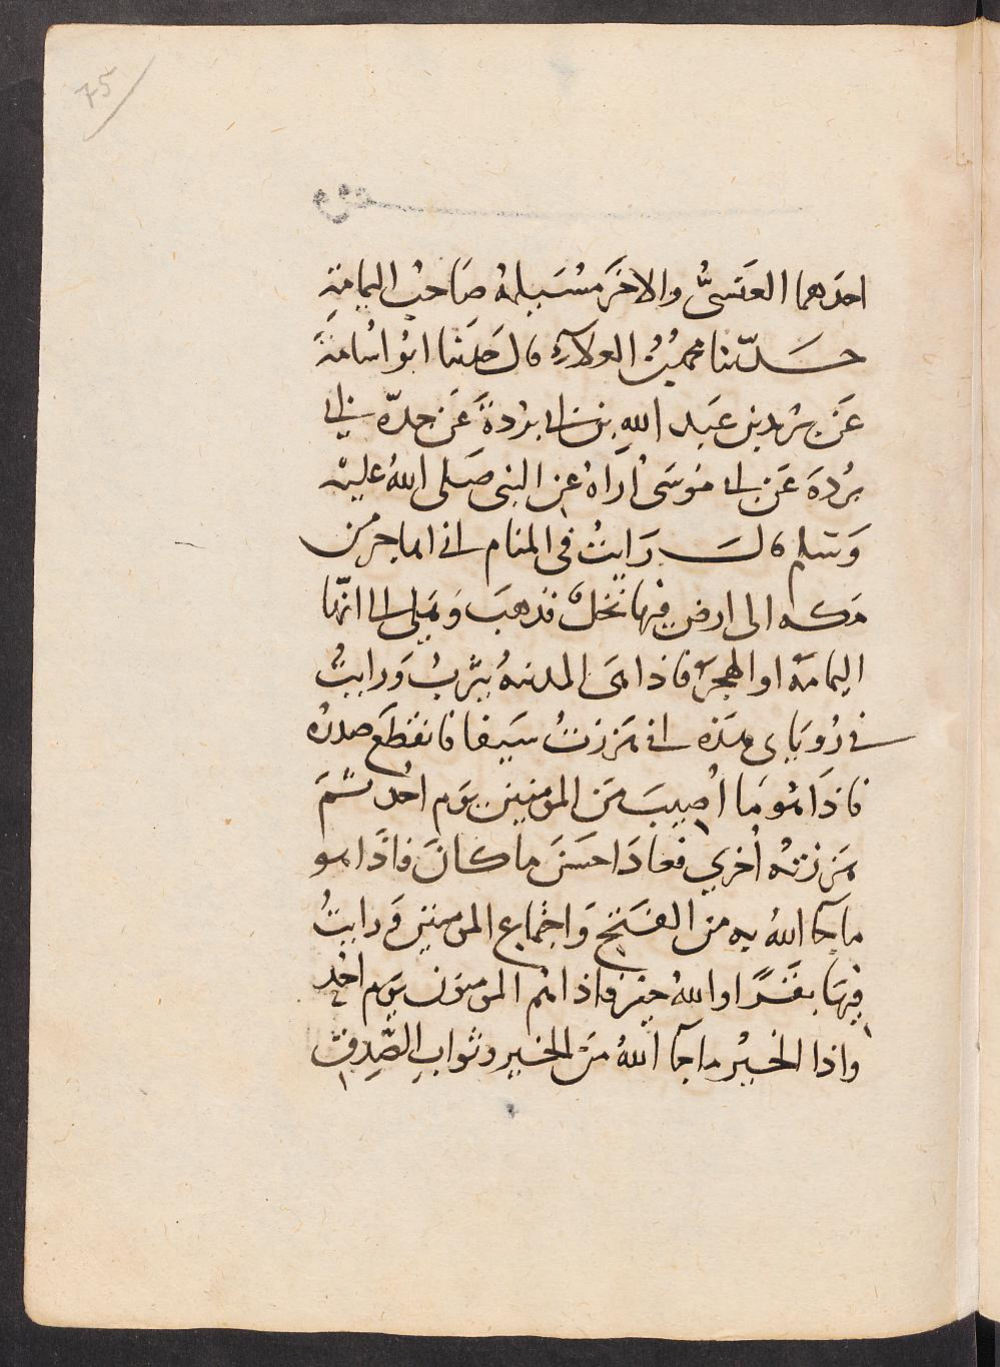 75
وقف
احدهما العَنسىُّ والاخَر مُسَيلمهُ صَاحبُ اليمامَةِ
حَدّثنا محمدُ بنُ العلآءِ قال حَدثنا ابُو اسُامَةَ
عَن بُريد بن عَبد اللهِ بن ابى بُردةَ عَن جدّه ابى
بُردهَ عَن ابى مُوسَى اُراهُ عن النبى صَلى اللهُ عليْه
وَسَلم قال رَايتُ فى المنام انى اهاجر من
مكه الى ارض فيها نَخلٌ فذهبَ وَهَلى الى انّها
اليمامَهُ او الهجرُ فاذا هَى المدينهُ يَثربُ وَرايتُ
فى رُويَاى هَذه انى هَززتُ سَيفا فانقطَع صدرُه
فاذَا هُو مَا اُصِيبَ مَن المومنين يَوم احُد ثُمَّ
هَززتهُ اُخرى فعَادَ احسَنَ ما كانَ فاذَا هو
ما جآ اللهُ به من الفَتحِ وَاجتماع المومنين وَرايتُ
فيهَا بقَرًا واللهُ خير فاذا هُم المومنون يَوم احُد
واذا الخيرُ ما جآ اللهُ مَن الخير وثوابِ الصّدقِ